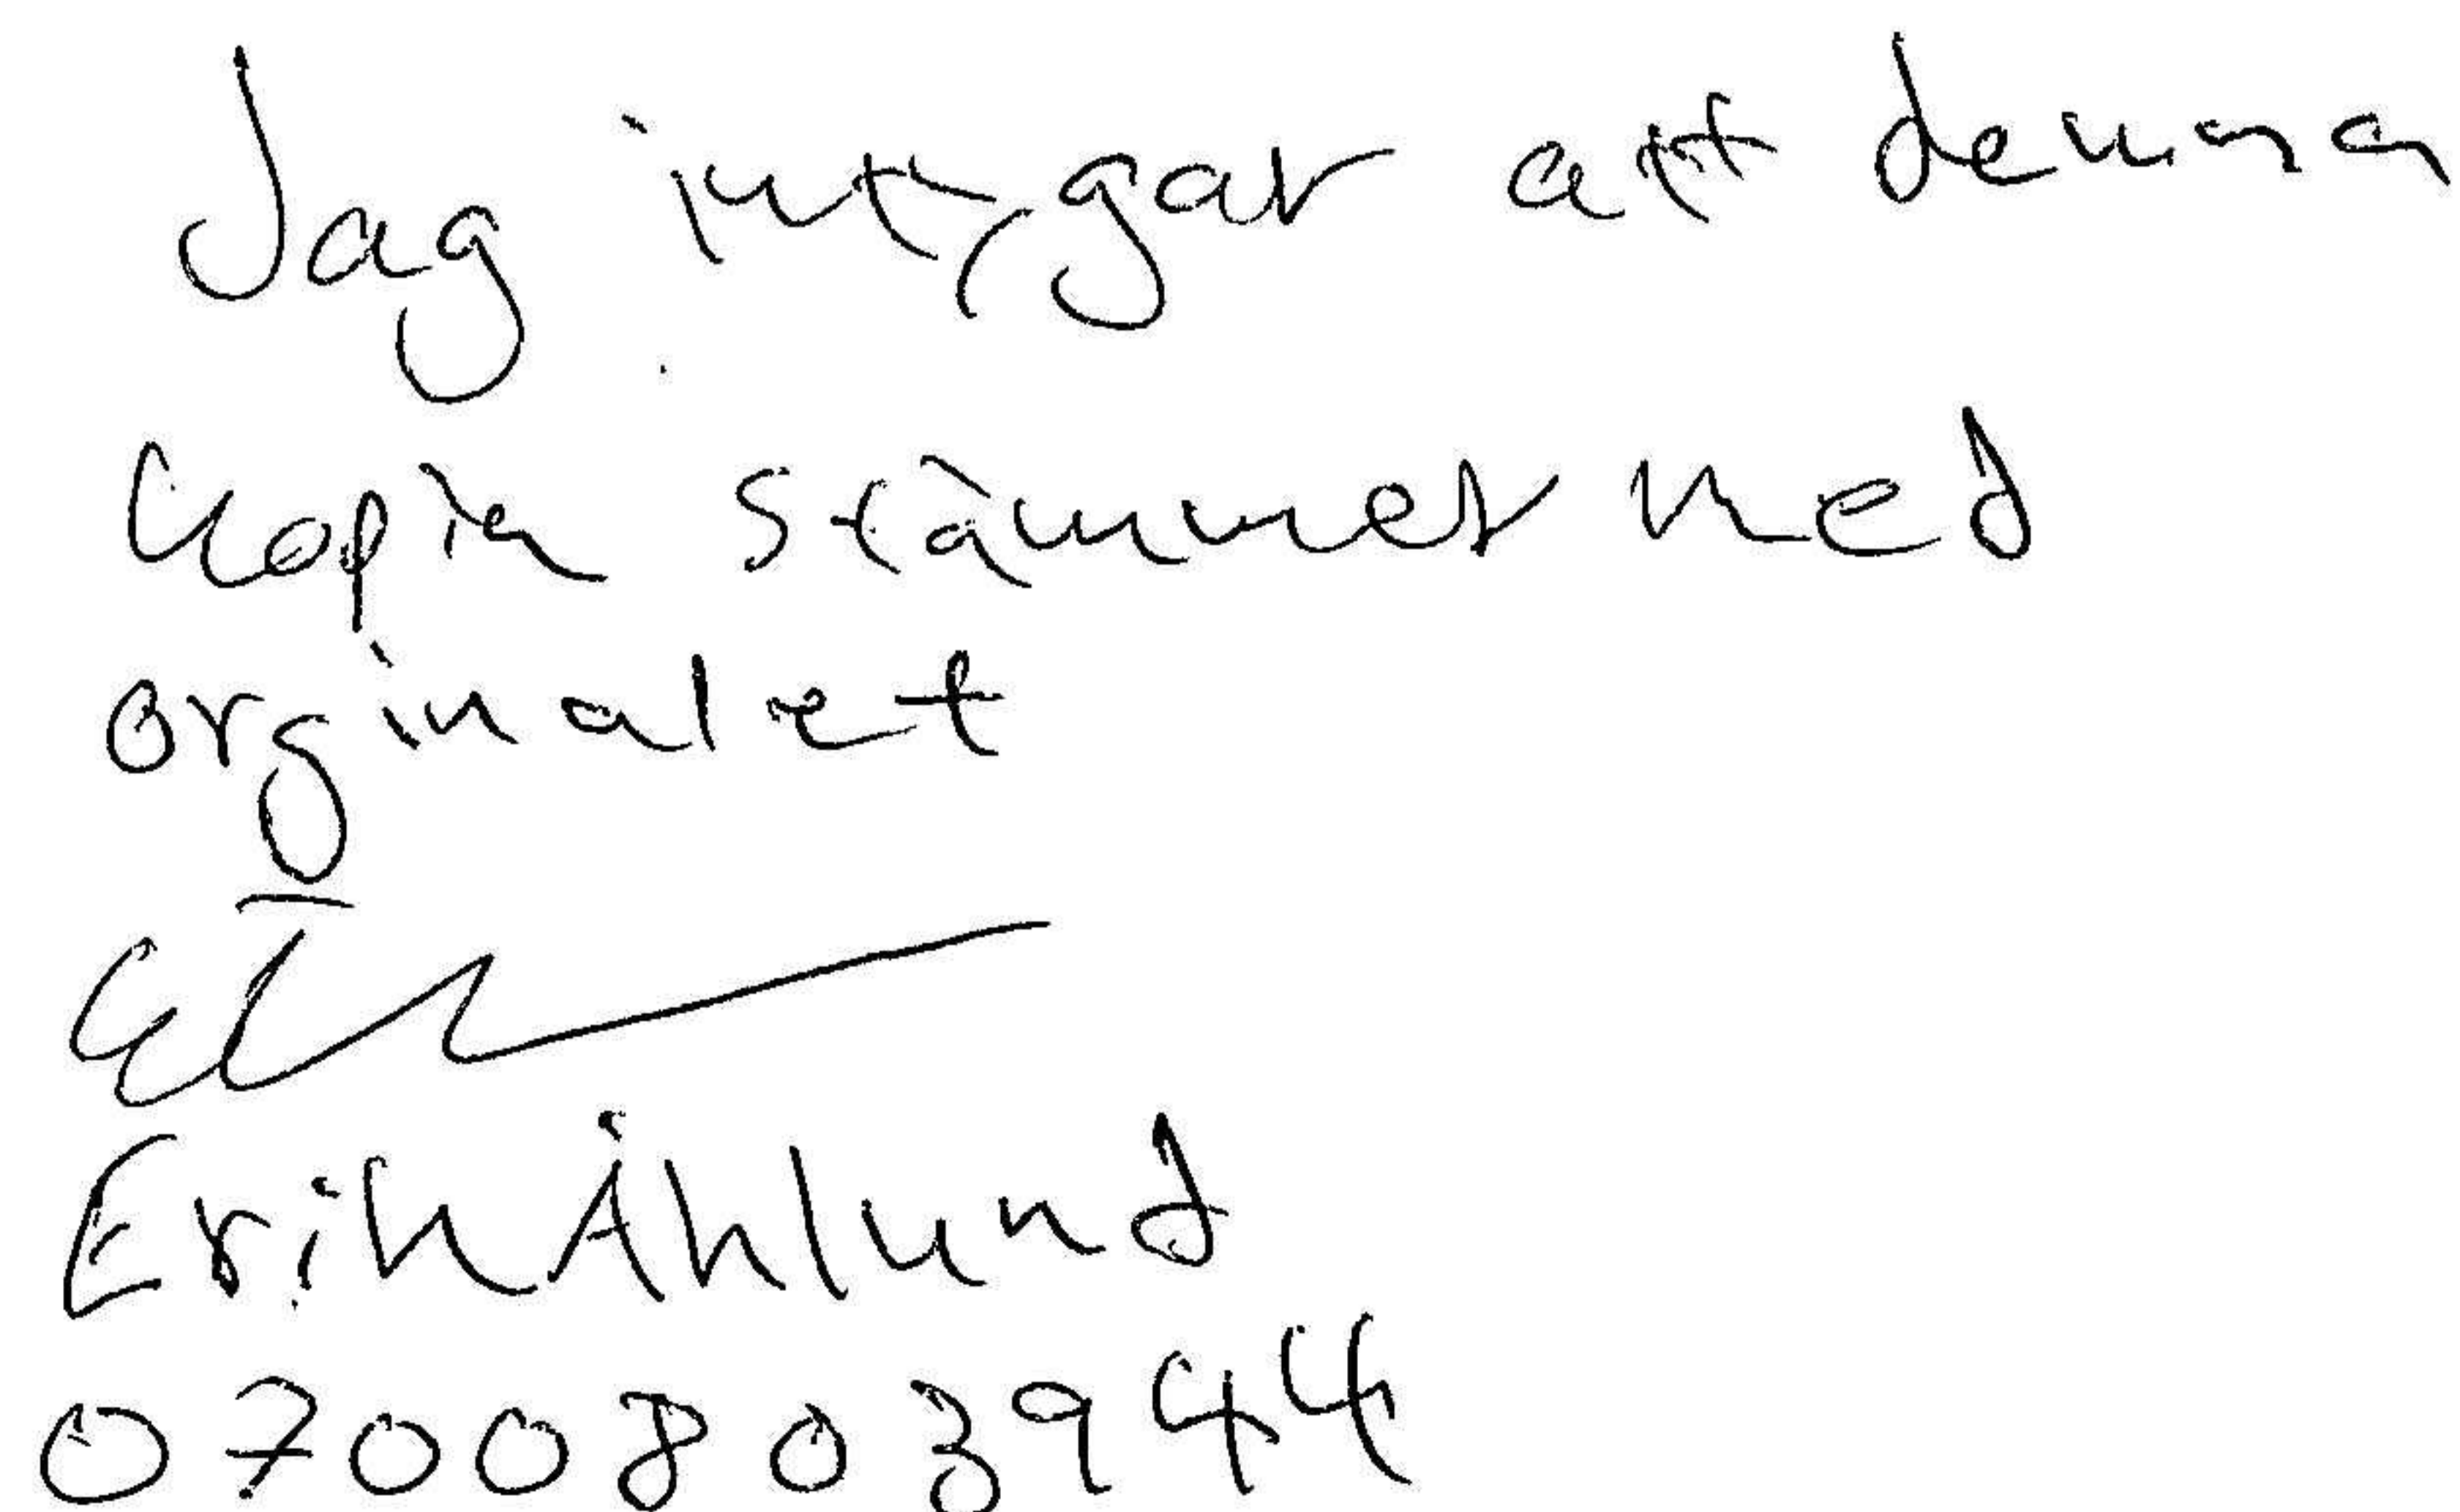 Jag intygar att denna
kopia stämmer med
orginalet
Erik Åhlund
0700803944